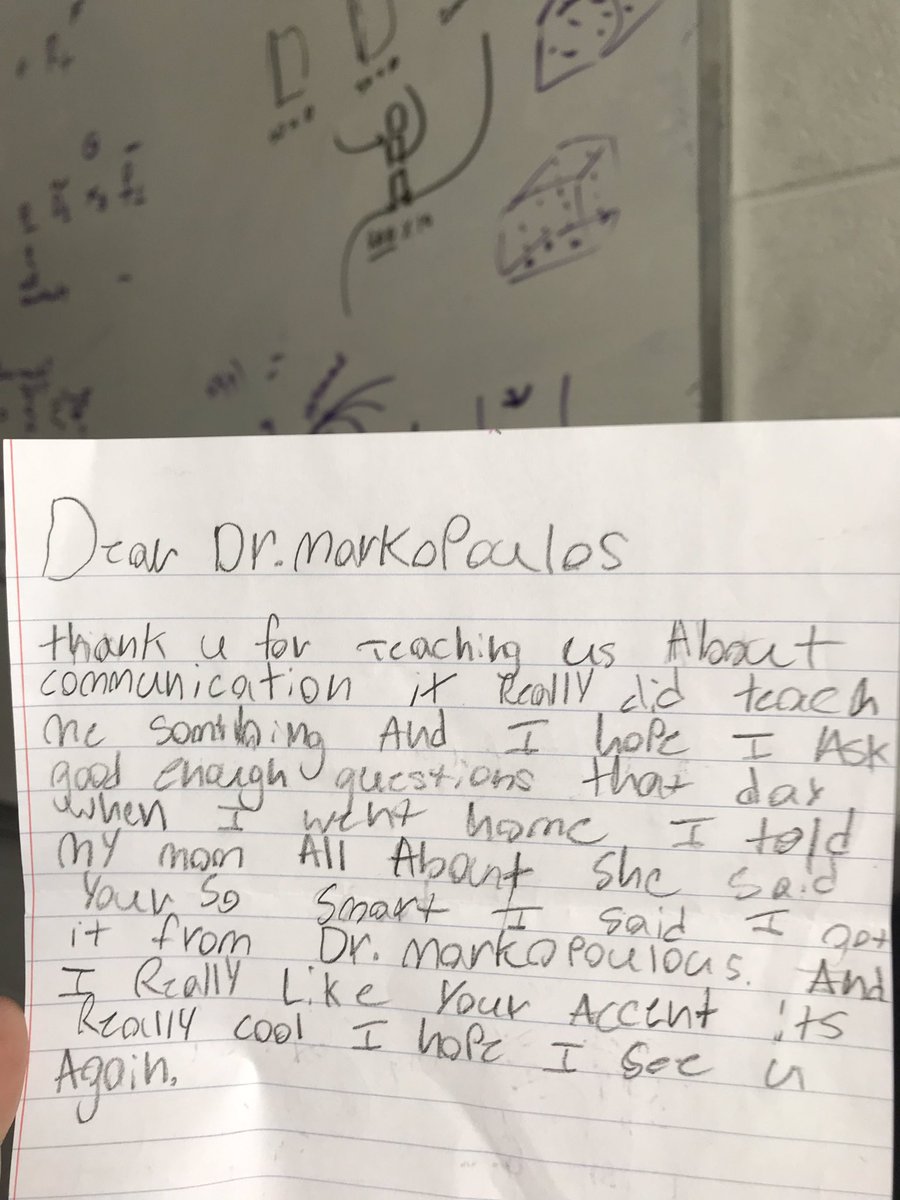 Dear Dr. MarkoPoulos
thank u for teaching us About
communication it Really did teach
me somthing And I hope I Ask
good enough questions that day
when I went home I told
my mom All About she said
Your So smart I said I got
it from Dr. markoPoulous. And
I Really Like Your Accent its
Really cool I hope I see u
Again.